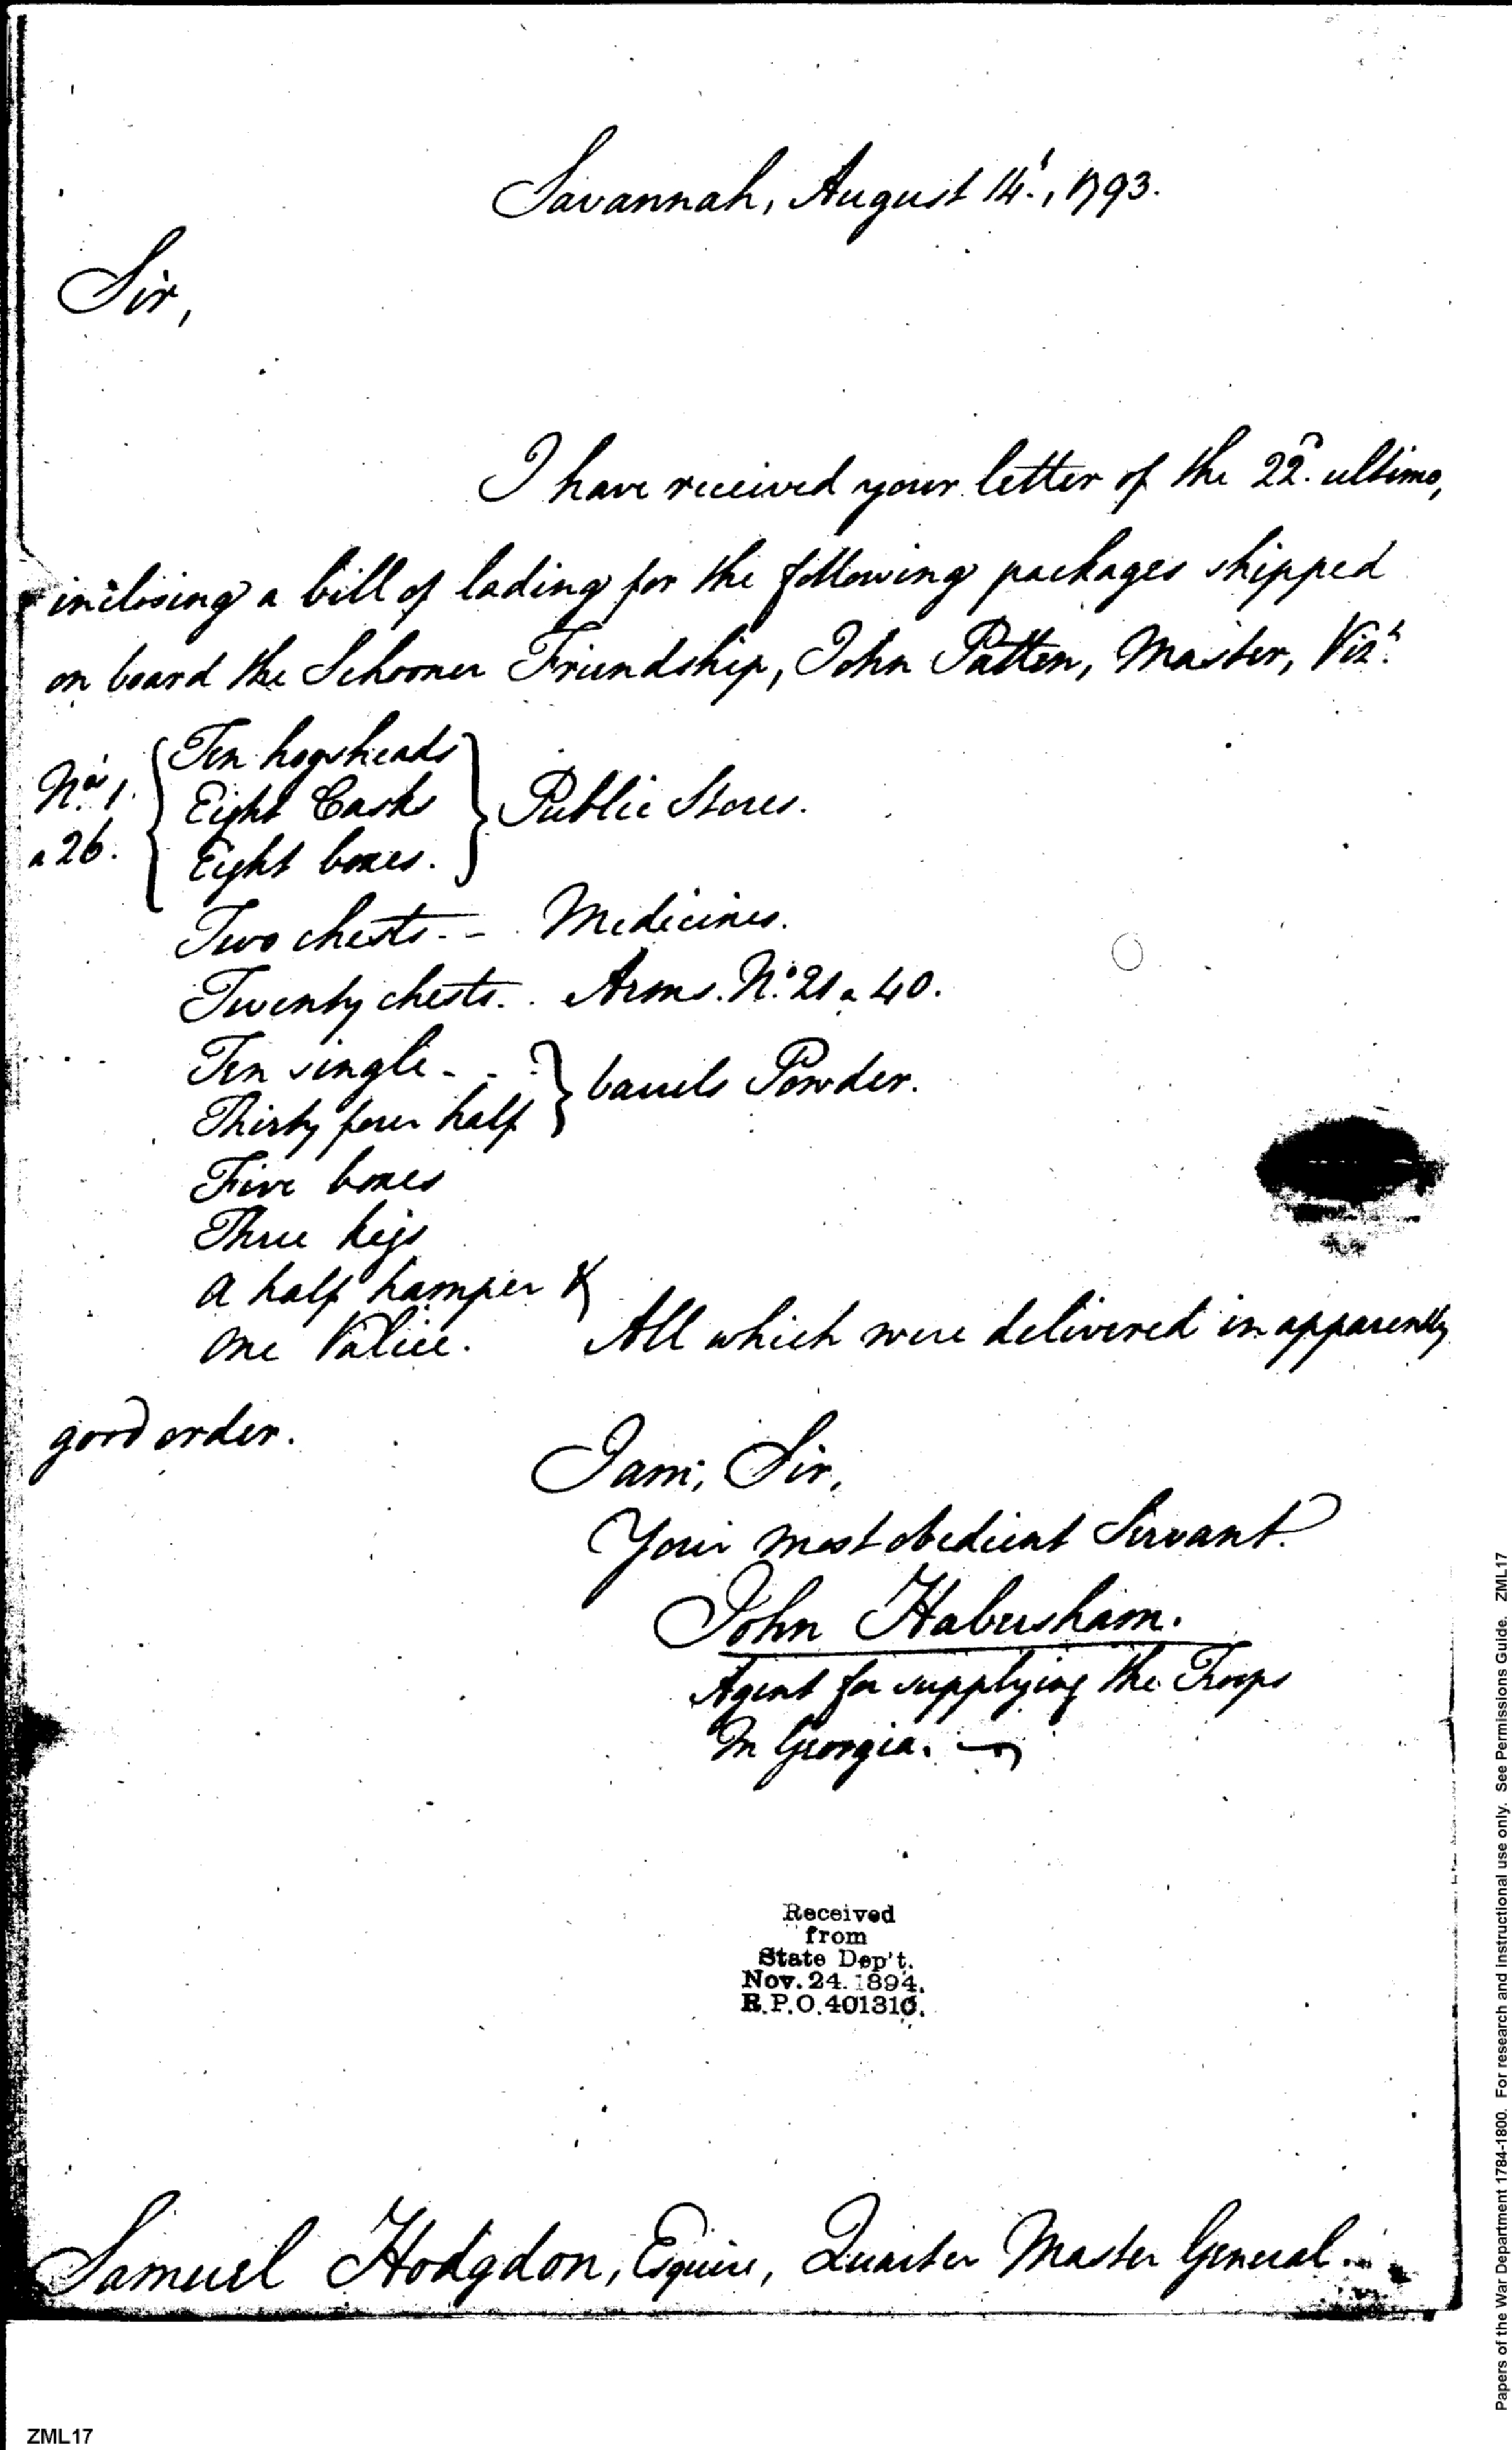 Savannah, August 14t, 1793.
Sir,
I have received your letter of the 22d. ultimo,
inclosing a bill of lading for the following packages shipped
on board the Schooner Friendship, John Patten, Master, Vizt.
Nos. 1. Ten hogsheads
Eight Casks Public Stores.
a 26. Eight boxes.
Two chests - - Medicines.
Twenty chests . . Arms. No. 21 a 40.
Ten single - - -
Thirty four half barrels Powder.
Five boxes
Three kegs
a half hamper &
one Valice. All which were delivered in apparently
good order.
I am, Sir,
Your most obedient Servant.
John Habersham.
Agent for supplying the Troops
In Georgia.
Received
from
State Dep't.
Nov. 24. 1894.
R.P.O. 401310.
Samuel Hodgdon, Esquire, Quarter Master General
ZML17
Papers of the War Department 1784-1800. For research and instructional use only. See Permissions Guide. ZML17